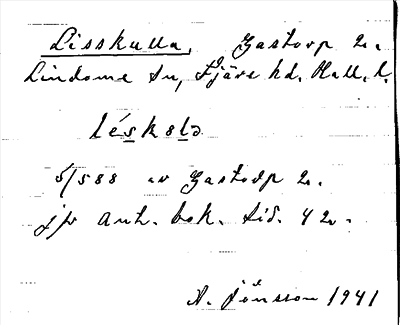 Lisskulla, Gastorp 2.
Lindome sn, Fjäre hd. Hall. l.
léskslə
5/588 av Gastorp 2.
jfr ant. bok. sid. 42.
A. Jönsson 1941